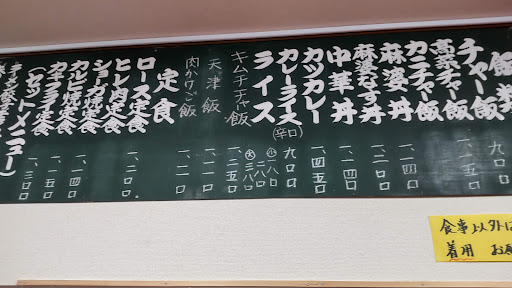 飯類
チャー飯 九〇〇
高菜チャー飯
カニチャー飯
麻婆丼 一、一四〇
麻婆なす丼 一、二〇〇
中華丼 一、一四〇
カツカレー 一、四五〇
カレーライス(辛口) 九〇〇
ライス 小一八〇 二八〇 大三八〇
キムチチャー飯 一、二五〇
天津飯 一、一〇〇
肉かけご飯 一、一〇〇
定食
ロース定食 一、二〇〇
ヒレ肉定食
ショーガ焼定食
カルビ焼定食 一、四〇〇
カキフライ定食 一、一五〇
(セットメニュー) 一、三〇〇
食事以外は
着用 お